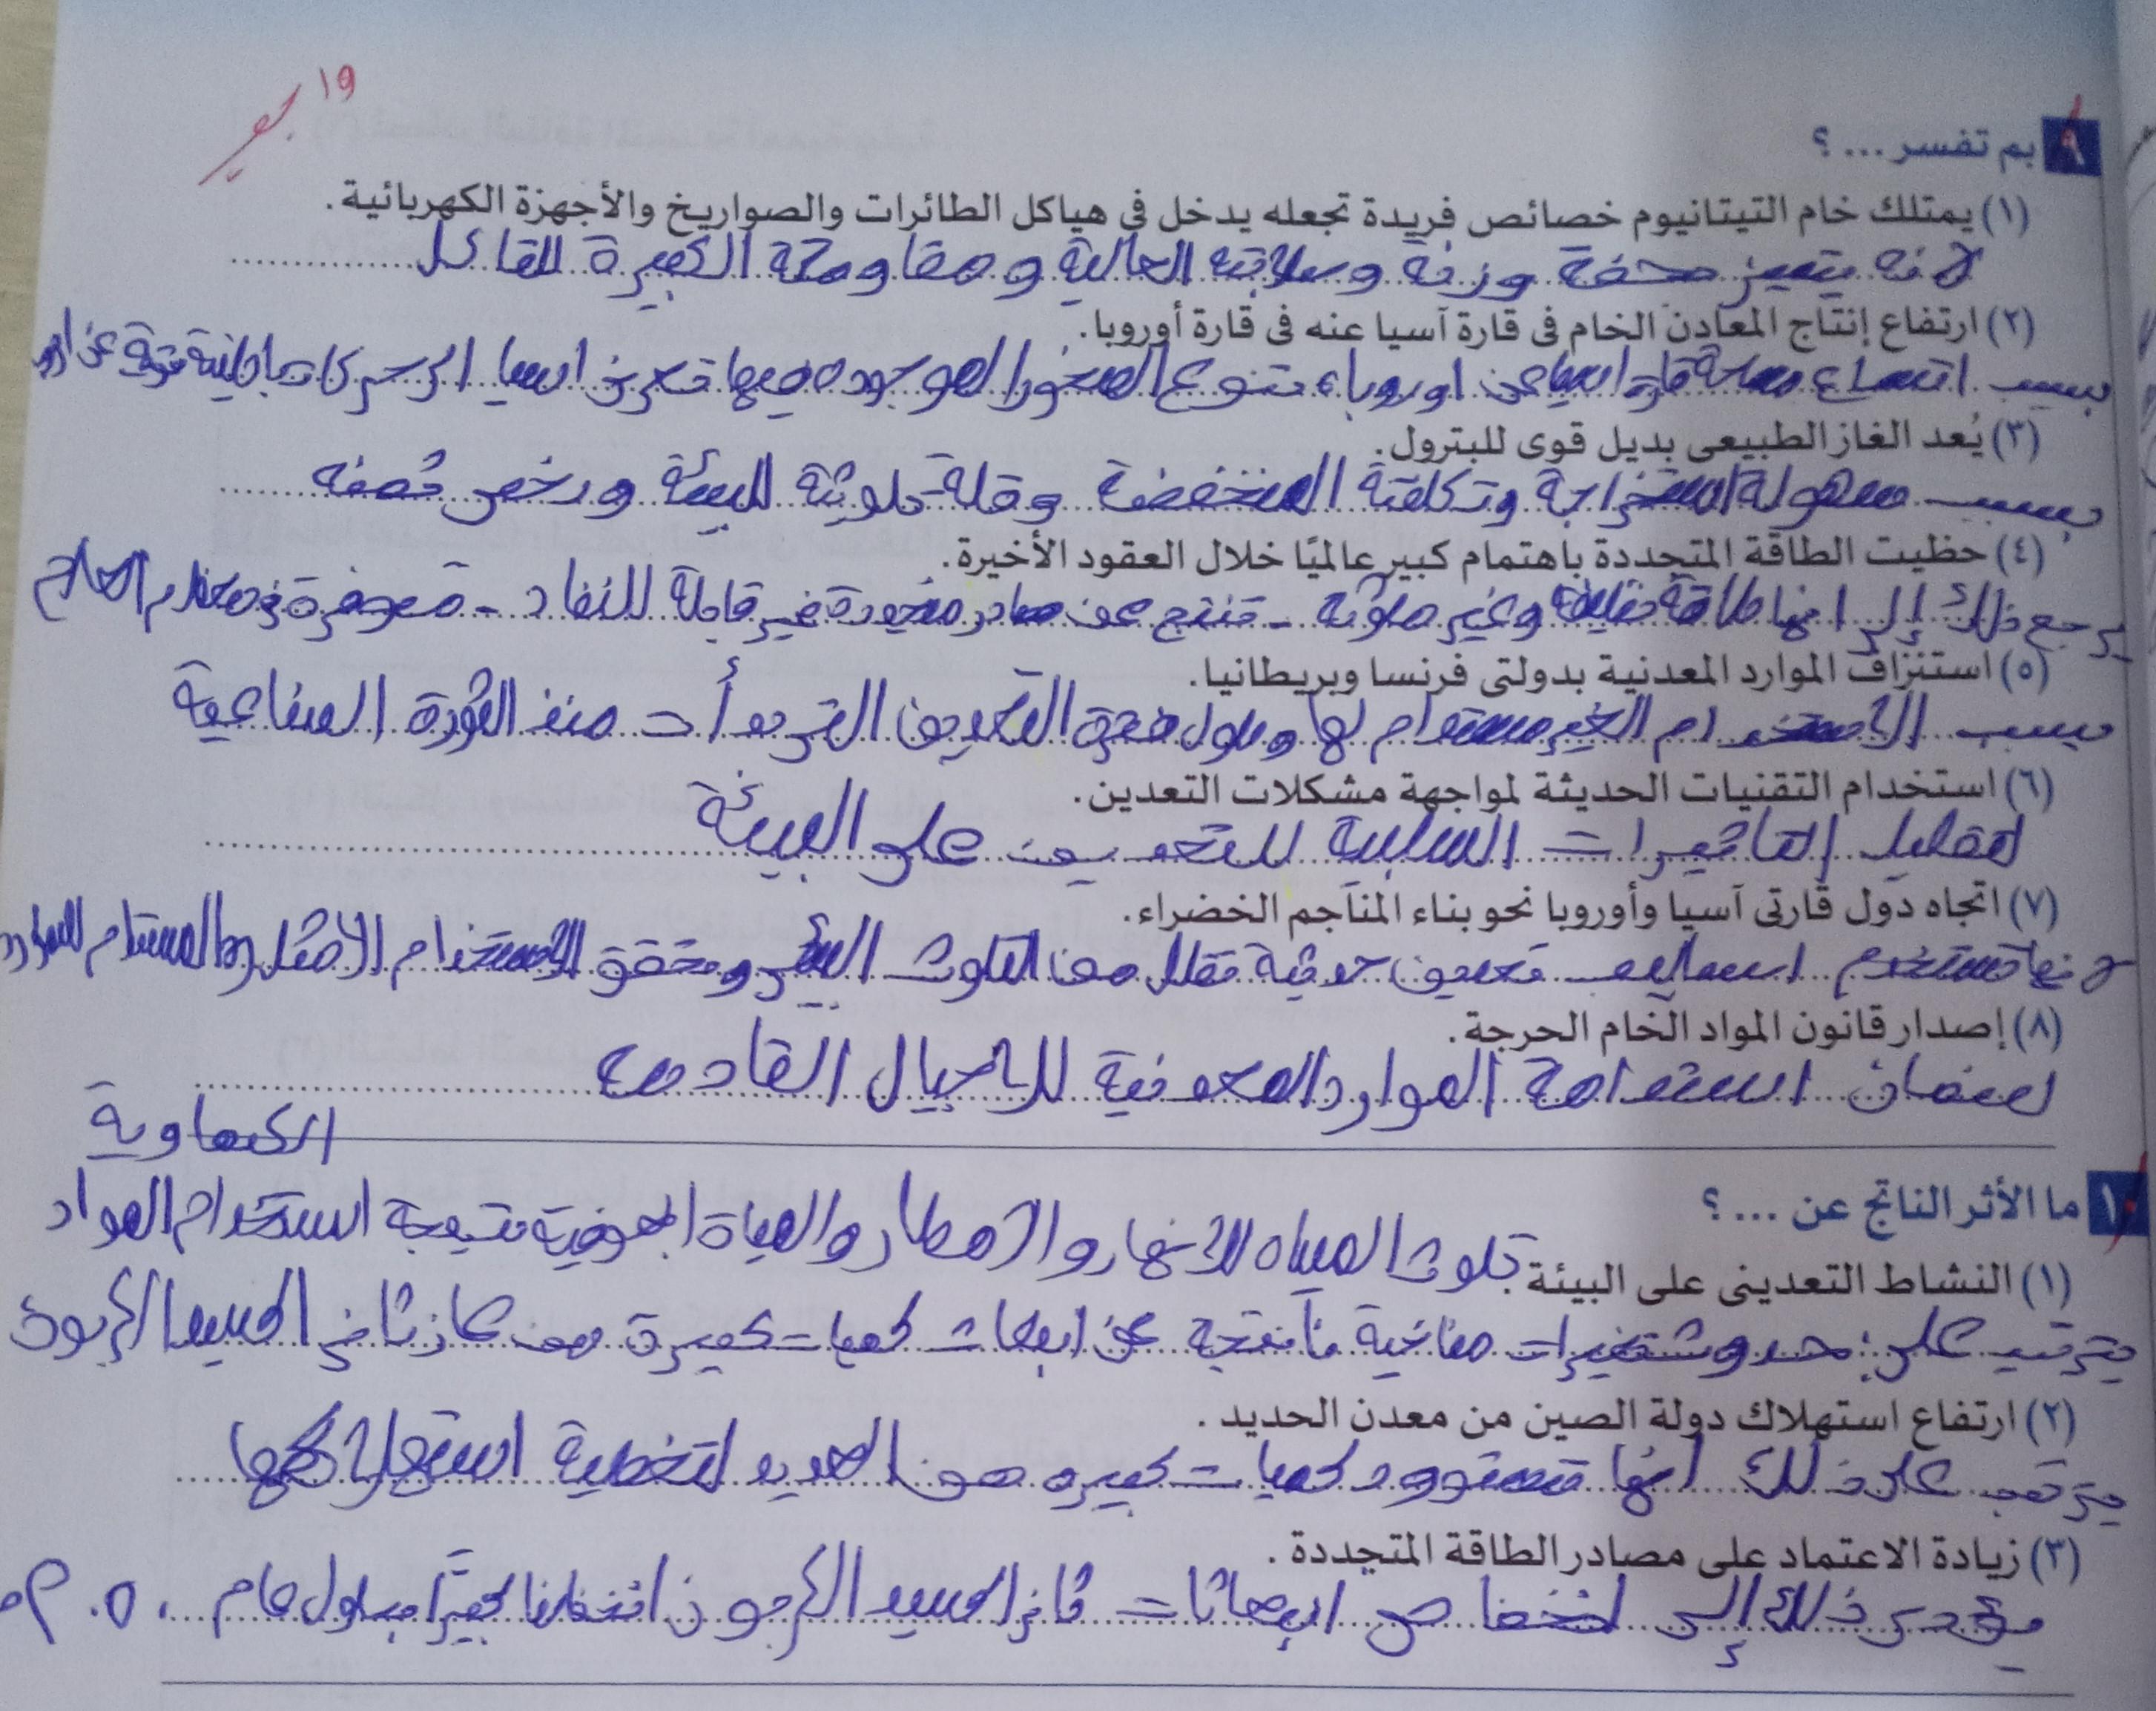 ١٩
٩ بم تفسر ... ؟
(١) يمتلك خام التيتانيوم خصائص فريدة تجعله يدخل في هياكل الطائرات والصواريخ والأجهزة الكهربائية.
لانه يتميز بخفة وزنة وصلابته العالية ومقاومتة الكبيرة للتاكل
(٢) ارتفاع إنتاج المعادن الخام في قارة آسيا عنه في قارة أوروبا.
بسبب اتساع مساحة قارة اسيا عن اوروبا، تنوع الصخور الموجوده فيها تعرض اسيا الى حركات باطنية قوية عن
(٣) يُعد الغاز الطبيعى بديل قوى للبترول.
بسبب سهولة استخراجة وتكلفتة المنخفضة وقلة تلويثة للبيئة ورخص
(٤) حظيت الطاقة المتجددة باهتمام كبير عالميًا خلال العقود الأخيرة.
يرجع ذلك إلى انها طاقة نظيفة وغير ملوثه - تنتج عن مصادر متجددة غير قابلة للنفاد - متوفرة في معظم العالم
(٥) استنزاف الموارد المعدنية بدولتى فرنسا وبريطانيا.
بسبب الاستخدام الغير مستدام لها وطول فترة التعدين التى بدأت منذ الثورة الصناعية
(٦) استخدام التقنيات الحديثة لمواجهة مشكلات التعدين.
لتقليل التاثيرات السلبية للتعدين على البيئة
(٧) اتجاه دول قارتى آسيا وأوروبا نحو بناء المناجم الخضراء.
لانها تستخدم اساليب تعدين حديثة تقلل من التلوث البيئى وتحقق الاستخدام الامثل والمستدام للموارد
(٨) إصدار قانون المواد الخام الحرجة.
لضمان استدامة الموارد المعدنية للاجيال القادمة
١٠ ما الأثر الناتج عن ... ؟
(١) النشاط التعدينى على البيئة تلوث المياه الانهار والامطار والمياة الجوفية نتيجة استخدام المواد الكيماوية
يترتب على: حدوث تغيرات مناخية ناتجة عن انبعاث كميات كبيرة من غاز ثانى اكسيد الكربون
(٢) ارتفاع استهلاك دولة الصين من معدن الحديد.
يترتب على ذلك انها تستورد كميات كبيره من الحديد لتغطية استهلاكها
(٣) زيادة الاعتماد على مصادر الطاقة المتجددة.
يؤدى ذلك إلى انخفاض انبعاثات ثانى اكسيد الكربون انخفاضا كبيرًا بحلول عام ٢٠٥٠م